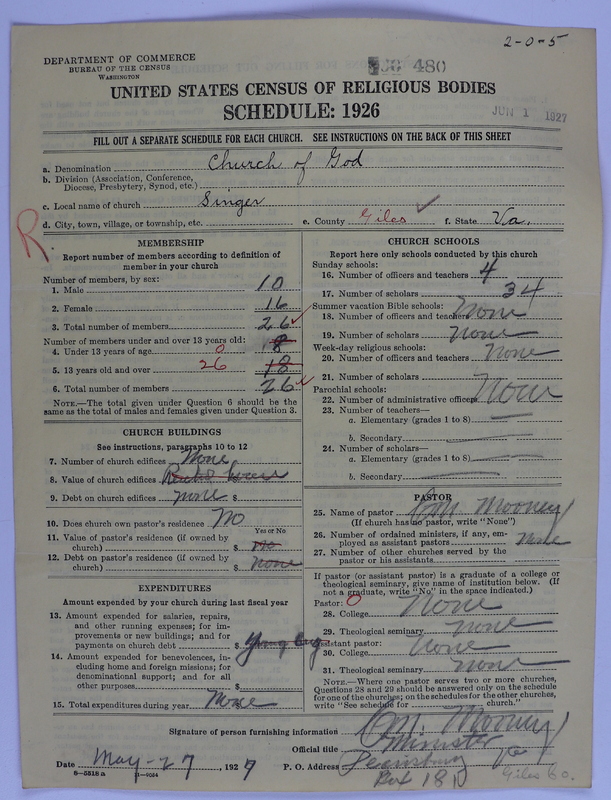 2-0-5
DEPARTMENT OF COMMERCE
BUREAU OF THE CENSUS
WASHINGTON
480
UNITED STATES CENSUS OF RELIGIOUS BODIES
SCHEDULE: 1926
JUN 1 1927
FILL OUT A SEPARATE SCHEDULE FOR EACH CHURCH. SEE INSTRUCTIONS ON THE BACK OF THIS SHEET
a. Denomination Church of God
b. Division (Association, Conference,
Diocese, Presbytery, Synod, etc.)
c. Local name of church Singer
d. City, town, village, or township, etc. e. County Giles f. State Va.
R
MEMBERSHIP
Report number of members according to definition of
member in your church
Number of members, by sex:
1. Male 10
2. Female 16
3. Total number of members 26
Number of members under and over 13 years old:
4. Under 13 years of age 0 8
5. 13 years old and over 26 18
6. Total number of members 26
NOTE.—The total given under Question 6 should be the
same as the total of males and females given under Question 3.
CHURCH BUILDINGS
See instructions, paragraphs 10 to 12
7. Number of church edifices None
8. Value of church edifices house
9. Debt on church edifices none $
10. Does church own pastor's residence No
Yes or No
11. Value of pastor's residence (if owned by
church) $ No
12. Debt on pastor's residence (if owned by
church) $ none
EXPENDITURES
Amount expended by your church during last fiscal year
13. Amount expended for salaries, repairs,
and other running expenses; for im-
provements or new buildings; and for
payments on church debt $
14. Amount expended for benevolences, in-
cluding home and foreign missions; for
denominational support; and for all
other purposes $
15. Total expenditures during year None
CHURCH SCHOOLS
Report here only schools conducted by this church
Sunday schools:
16. Number of officers and teachers 4
17. Number of scholars 34
Summer vacation Bible schools:
18. Number of officers and teachers None
19. Number of scholars None
Week-day religious schools:
20. Number of officers and teachers None
21. Number of scholars
Parochial schools:
22. Number of administrative officers None
23. Number of teachers—
a. Elementary (grades 1 to 8)
b. Secondary
24. Number of scholars—
a. Elementary (grades 1 to 8)
b. Secondary
PASTOR
25. Name of pastor Mooney
(If church has no pastor, write "None")
26. Number of ordained ministers, if any, em-
ployed as assistant pastors None
27. Number of other churches served by the
pastor or his assistants
If pastor (or assistant pastor) is a graduate of a college or
theological seminary, give name of institution below. (If
not a graduate, write "No" in the space indicated.)
Pastor: 0
28. College None
29. Theological seminary none
Assistant pastor:
30. College None
31. Theological seminary none
NOTE.—Where one pastor serves two or more churches,
Questions 28 and 29 should be answered only on the schedule
for one of the churches; on the schedules for the other churches,
write "See schedule for church."
Signature of person furnishing information Mooney
Official title Minister
Date May-27, 1927 P. O. Address Pearisburg Va
8—5518 a 11—9054
Box 18
Giles Co.